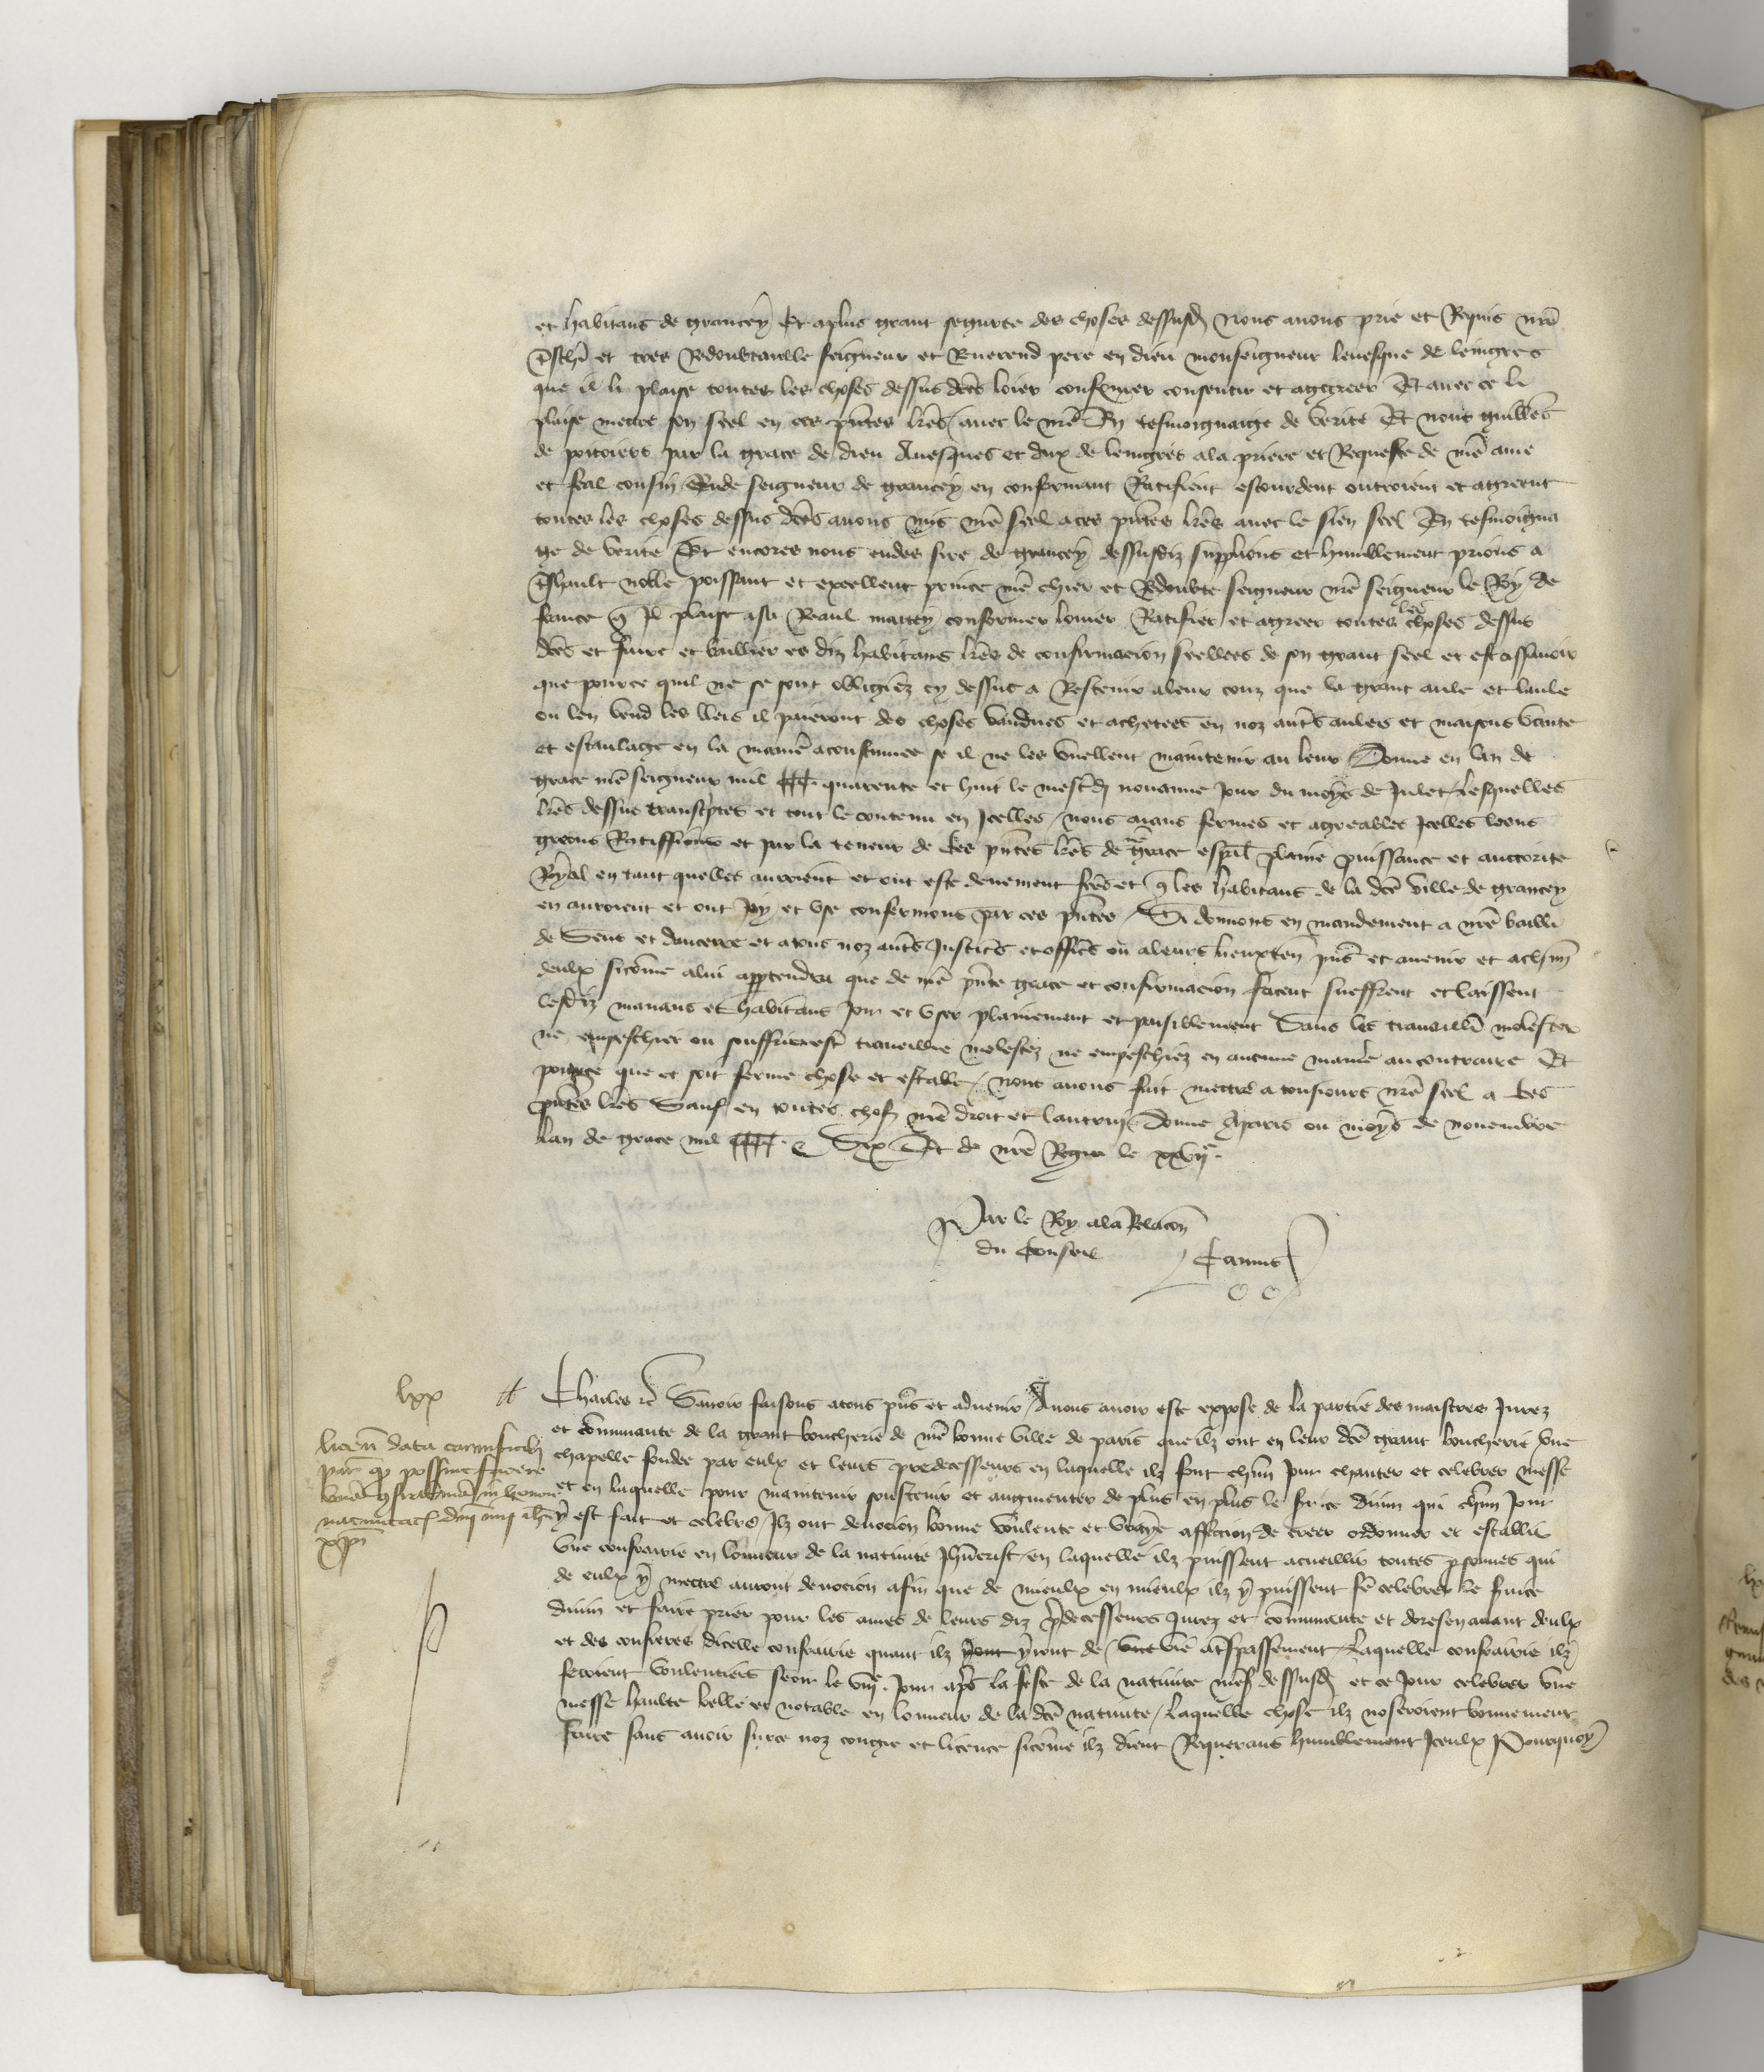 et habitans de grancey Et a plus grant segurte des choses dessusd nous auons prie et Requis nre
tschi et tres Redoubtauble seigneur et Reuerend pere en dieu monseigneur leuesque de lengres
que il li plaise toutes les choses dessus dces loier confermer consentir et aggreer Et auec ce li
plaise mectre son seel en ces pntes lres auec le nre En tesmoignaige de verite Et nous guilles
de poitiers par la grace de dieu Auesques et dux de lengres ala priere et Requeste de nre ame
et feal cousin Eude seigneur de grancey en confermant Ratifient outroient et agreent
toutes les choses dessus dces auons mis nre seel a ces pntes lres auec le sien seel En tesmoigna
ge de verite Et encores nous eudes sire de grancey dessusdiz supplions et humblement prions a
tshault noble poissant et excellent prince nre chier et Redoubte seigneur nre seigneur le Roy de
france q Il plaise asa Reaul maiey confermer louer Ratifier et agreer toutes les choses dessus
dces et faire et baillier es diz habitans lres de confirmacion seellees de son grant seel et est assauoir
que pource quil ne se sont obligiez cy dessus a Restenir aleur couz que la grant aule et laule
ou len vend les bleis il paieront des choses vandues et achetees en noz autres aules et maisons vante
et estaulage en la maniere acoustumee se il ne les vuellent maintenir au leur Donne en lan de
grace nre seigneur mil ccc quarente et huit le mescredi nouaime Jour du moys de Julet Lesquelles
lres dessus transcriptes et tout le contenu en Jcelles nous aians fermes et agreables Jcelles loons
greons Ratiffions et par la teneur de ces pntes lres de grace espal plaine puissance et auctorite
Royal en tant quelles auroient et ont este deuement fces et q les habitans de la dce ville de grancey
en auroient et ont Joy et vse confermons par ces pntes Si donnons en mandement a nre bailli
de Sens et daucerre et atous noz autres Justiciers et officiers ou aleurs lieuxten pns et auenir et achun
deulx sicomme alui appartendra que de nre pnte grace et confirmacion facent sueffrent et laissent
lesdiz manans et habitans Joir et vser plainement et paisiblement Sans les trauaillier molester
ne empeschier ou souffrir estre trauaillie molestez ne empeschiez en aucune maniere au contraire Et
pource que ce soit ferme chose et estable nous auons fait mectre a tousiours nre seel a ces
pntes lres Sauf en toutes choses nre droit et lautruy Donne Aparis ou moys de nouembre
Lan de grace mil cccc & Six Et de nre Regne le xxvij
Par le Roy ala Relacon
du Conseil
Camus
lxx
Charles &c Sauoir faisons atous pns et aduenir Anous auoir este expose de la partie des maistres Jurez
et communaute de la grant boucherie de nre bonne ville de paris que ilz ont en leur dce grant boucherie vne
chapelle fondee par eulx et leurs predecesseurs en laquelle ilz font chun Jour chanter et celebrer messe
et en laquelle pour maintenir soustenir et augmenter de plus en plus le seruice diuin qui chun Jour
y est fait et celebre Ilz ont deuocion bonne voulente et vraye affeccion de creer ordonner et establir
vne confrairie en lonneur de la natiuite Jhucrist en laquelle ilz puissent acueillir toutes psonnes qui
de eulx y mectre auront deuocion afin que de mieulx en mieulx ilz y puissent fe celebrer le seruice
diuin et faire prier pour les ames de leurs diz predecesseurs Jurez et communaute et doresenauant deulx
et des confreres dicelle confrairie quant ilz yront de vie a trespassement Laquelle confrairie ilz
feroient voulentiers seoir le viije Jour apres la feste de la natiuite nres dessusd et ce Jour celebrer vne
messe haulte belle et notable en lonneur de la dce natiuite Laquelle chose ilz noseroient bonnement
faire sans auoir surce noz congie et licence sicomme ilz dient Requerans humblement Jceulx Pourquoy
licen data carnificib
par q possint facere
unam confratriam in honore
natiuitatis dni nri ihu
xpi